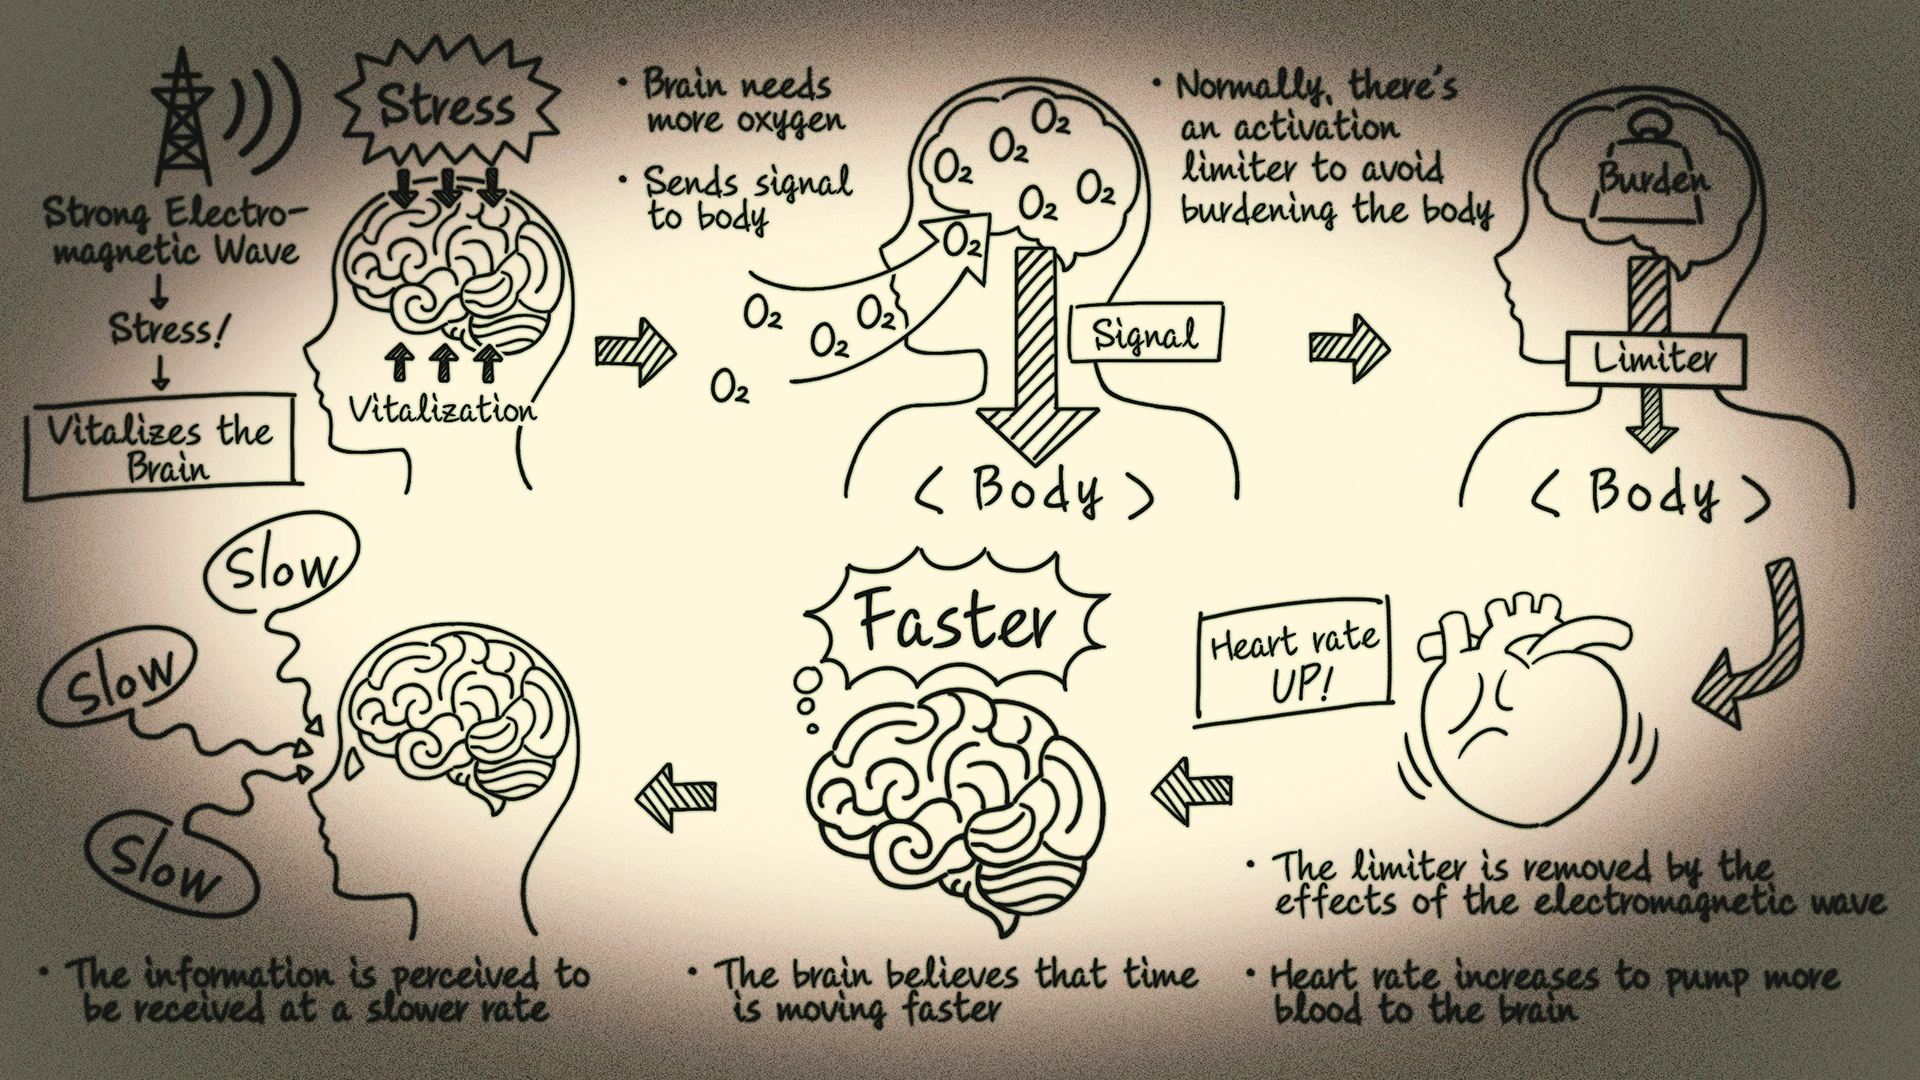 Stress
Strong Electro-
magnetic Wave
Stress!
Vitalizes the
Brain
Vitalization
• Brain needs
more oxygen
• Sends signal
to body
O₂
O₂
O₂
O₂
O₂
O₂
O₂
O₂
O₂
O₂
Signal
< Body >
• Normally, there's
an activation
limiter to avoid
burdening the body
Burden
Limiter
< Body >
Heart rate
UP!
• The limiter is removed by the
effects of the electromagnetic wave
• Heart rate increases to pump more
blood to the brain
Faster
• The brain believes that time
is moving faster
Slow
Slow
Slow
• The information is perceived to
be received at a slower rate